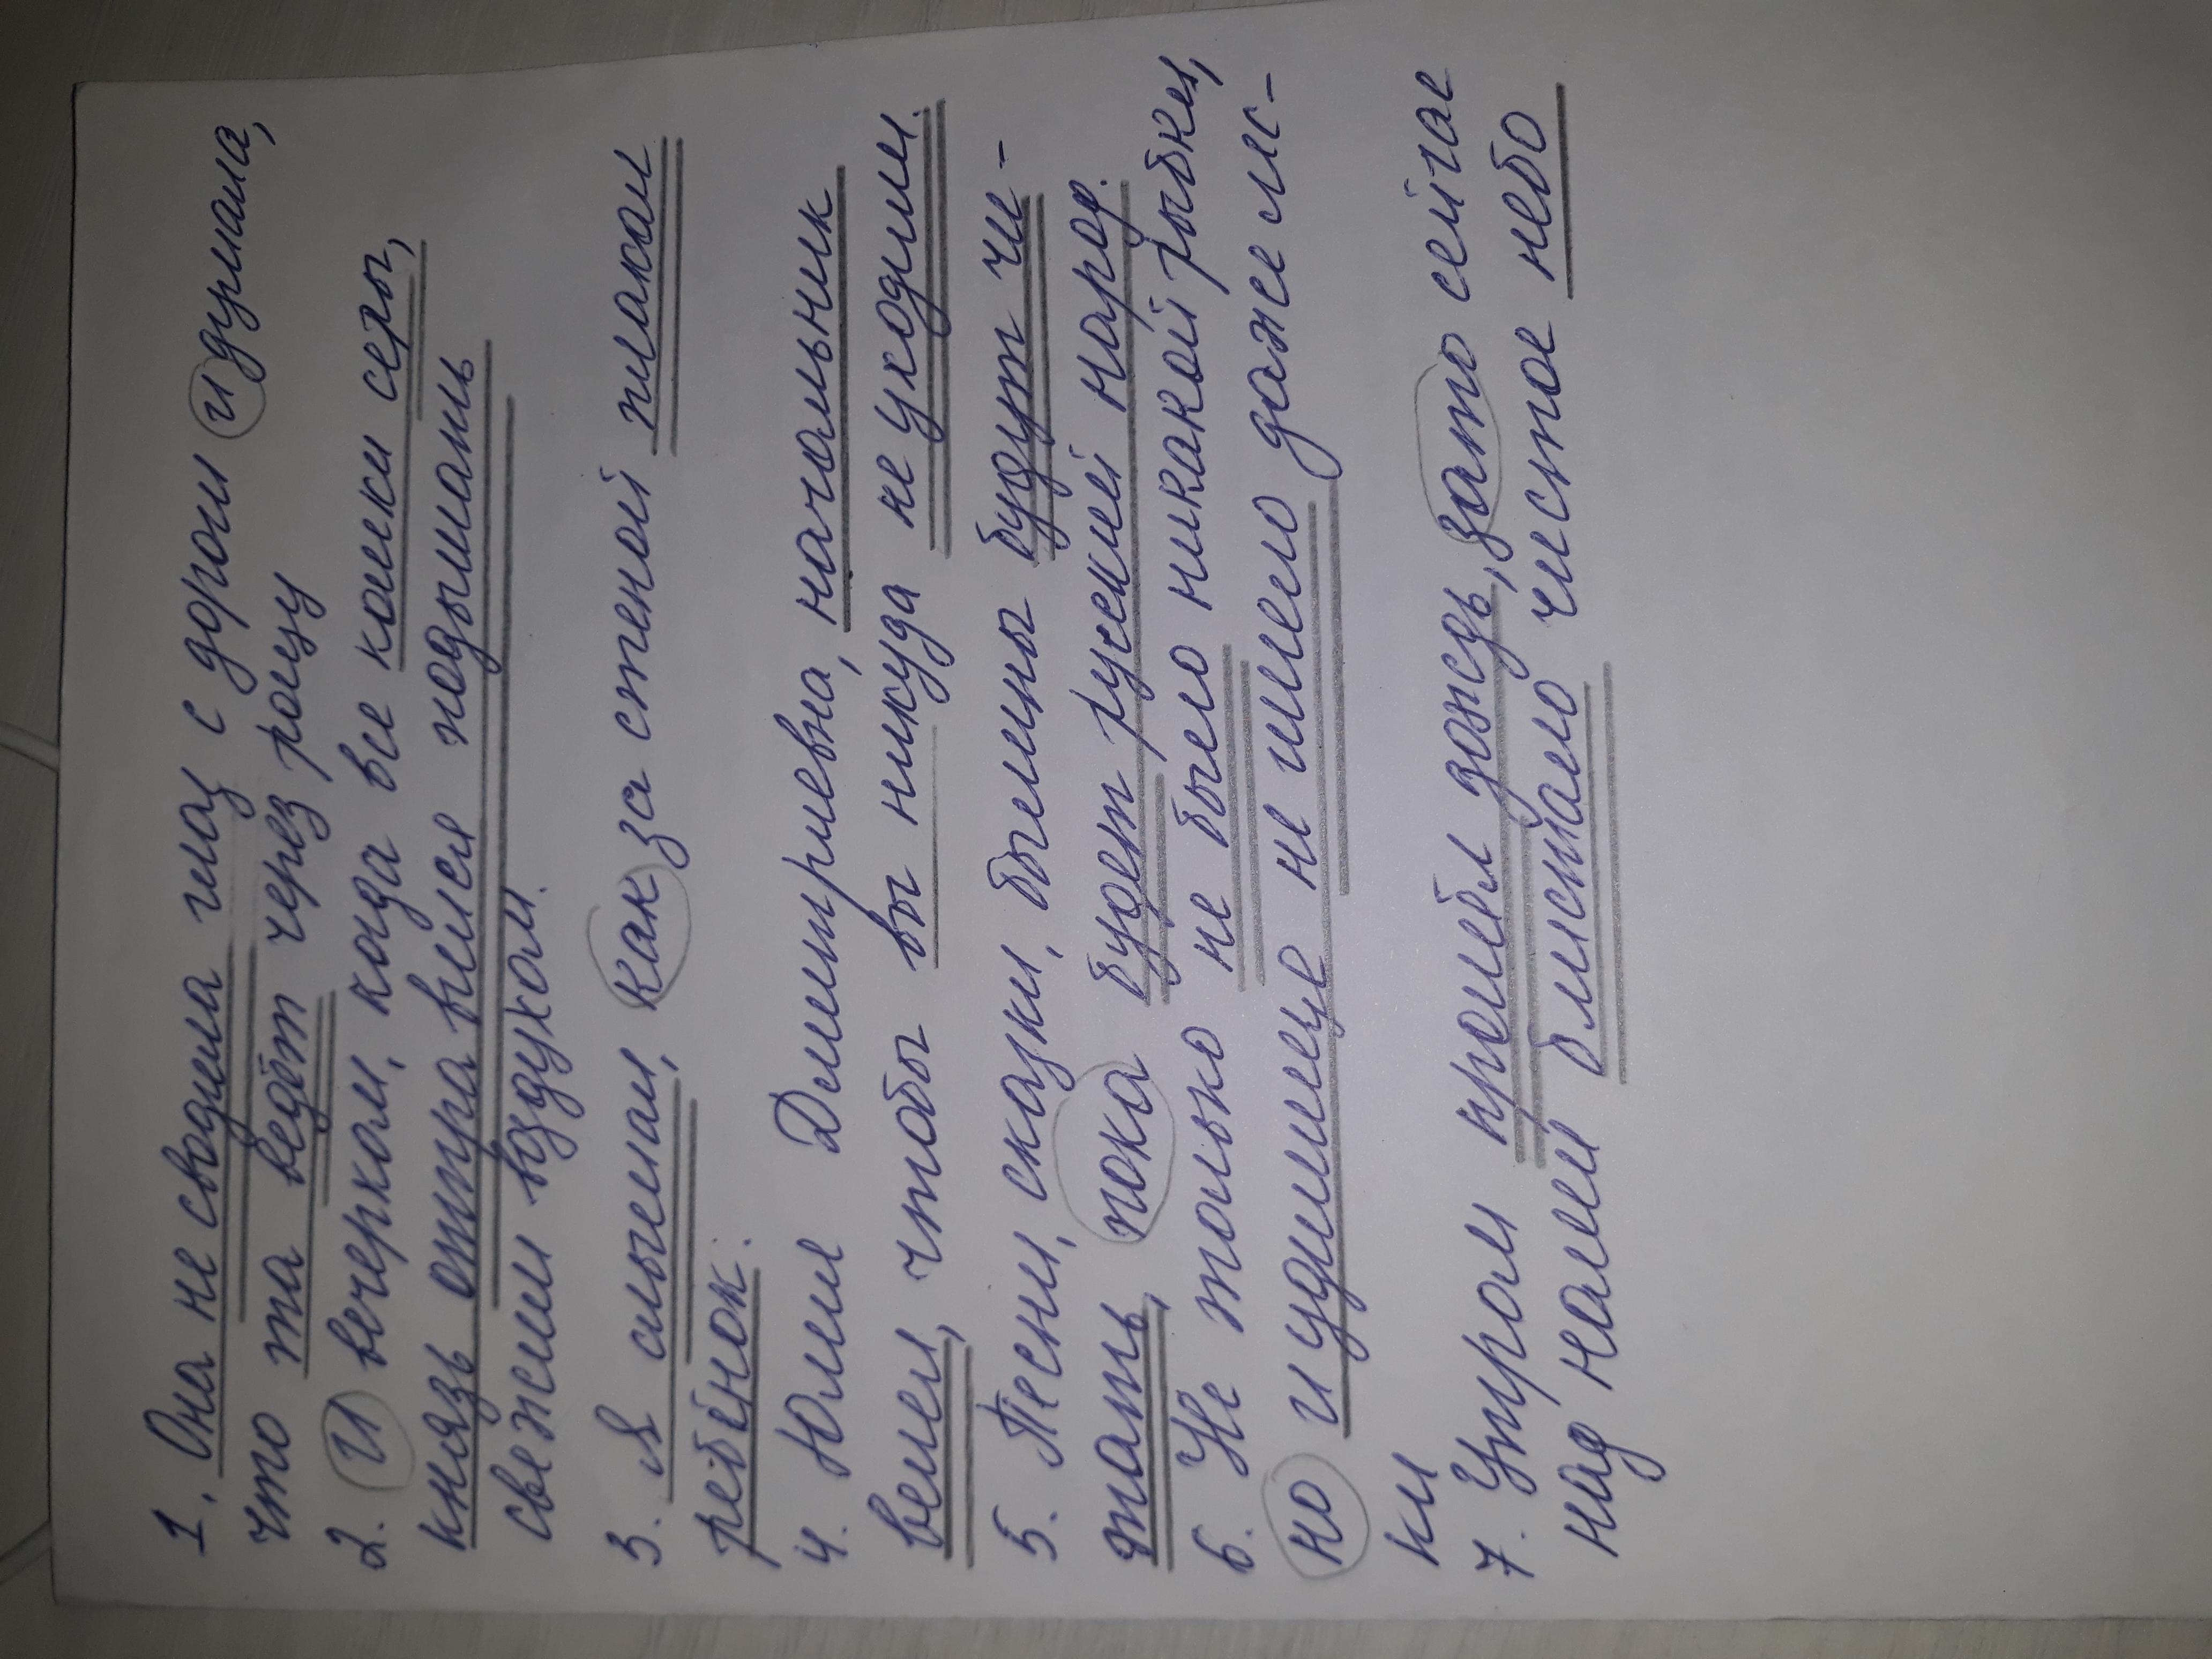 1. Она не сводила глаз с дороги и думала,
что та ведёт через рощу
2. И вечерком, когда все кошки серы,
князь отправился подышать
свежим воздухом.
3. Я слышал, как за стеной плакал
ребёнок.
4. Юлия Дмитриевна, начальник
велел, чтобы вы никуда не уходили.
5. Песни, сказки, былины будут чи-
тать, пока будет русский народ.
6. Не только не было никакой рыбки,
но и удилище не имело даже лес-
ки
7. Утром прошёл дождь, зато сейчас
над нами блистало чистое небо